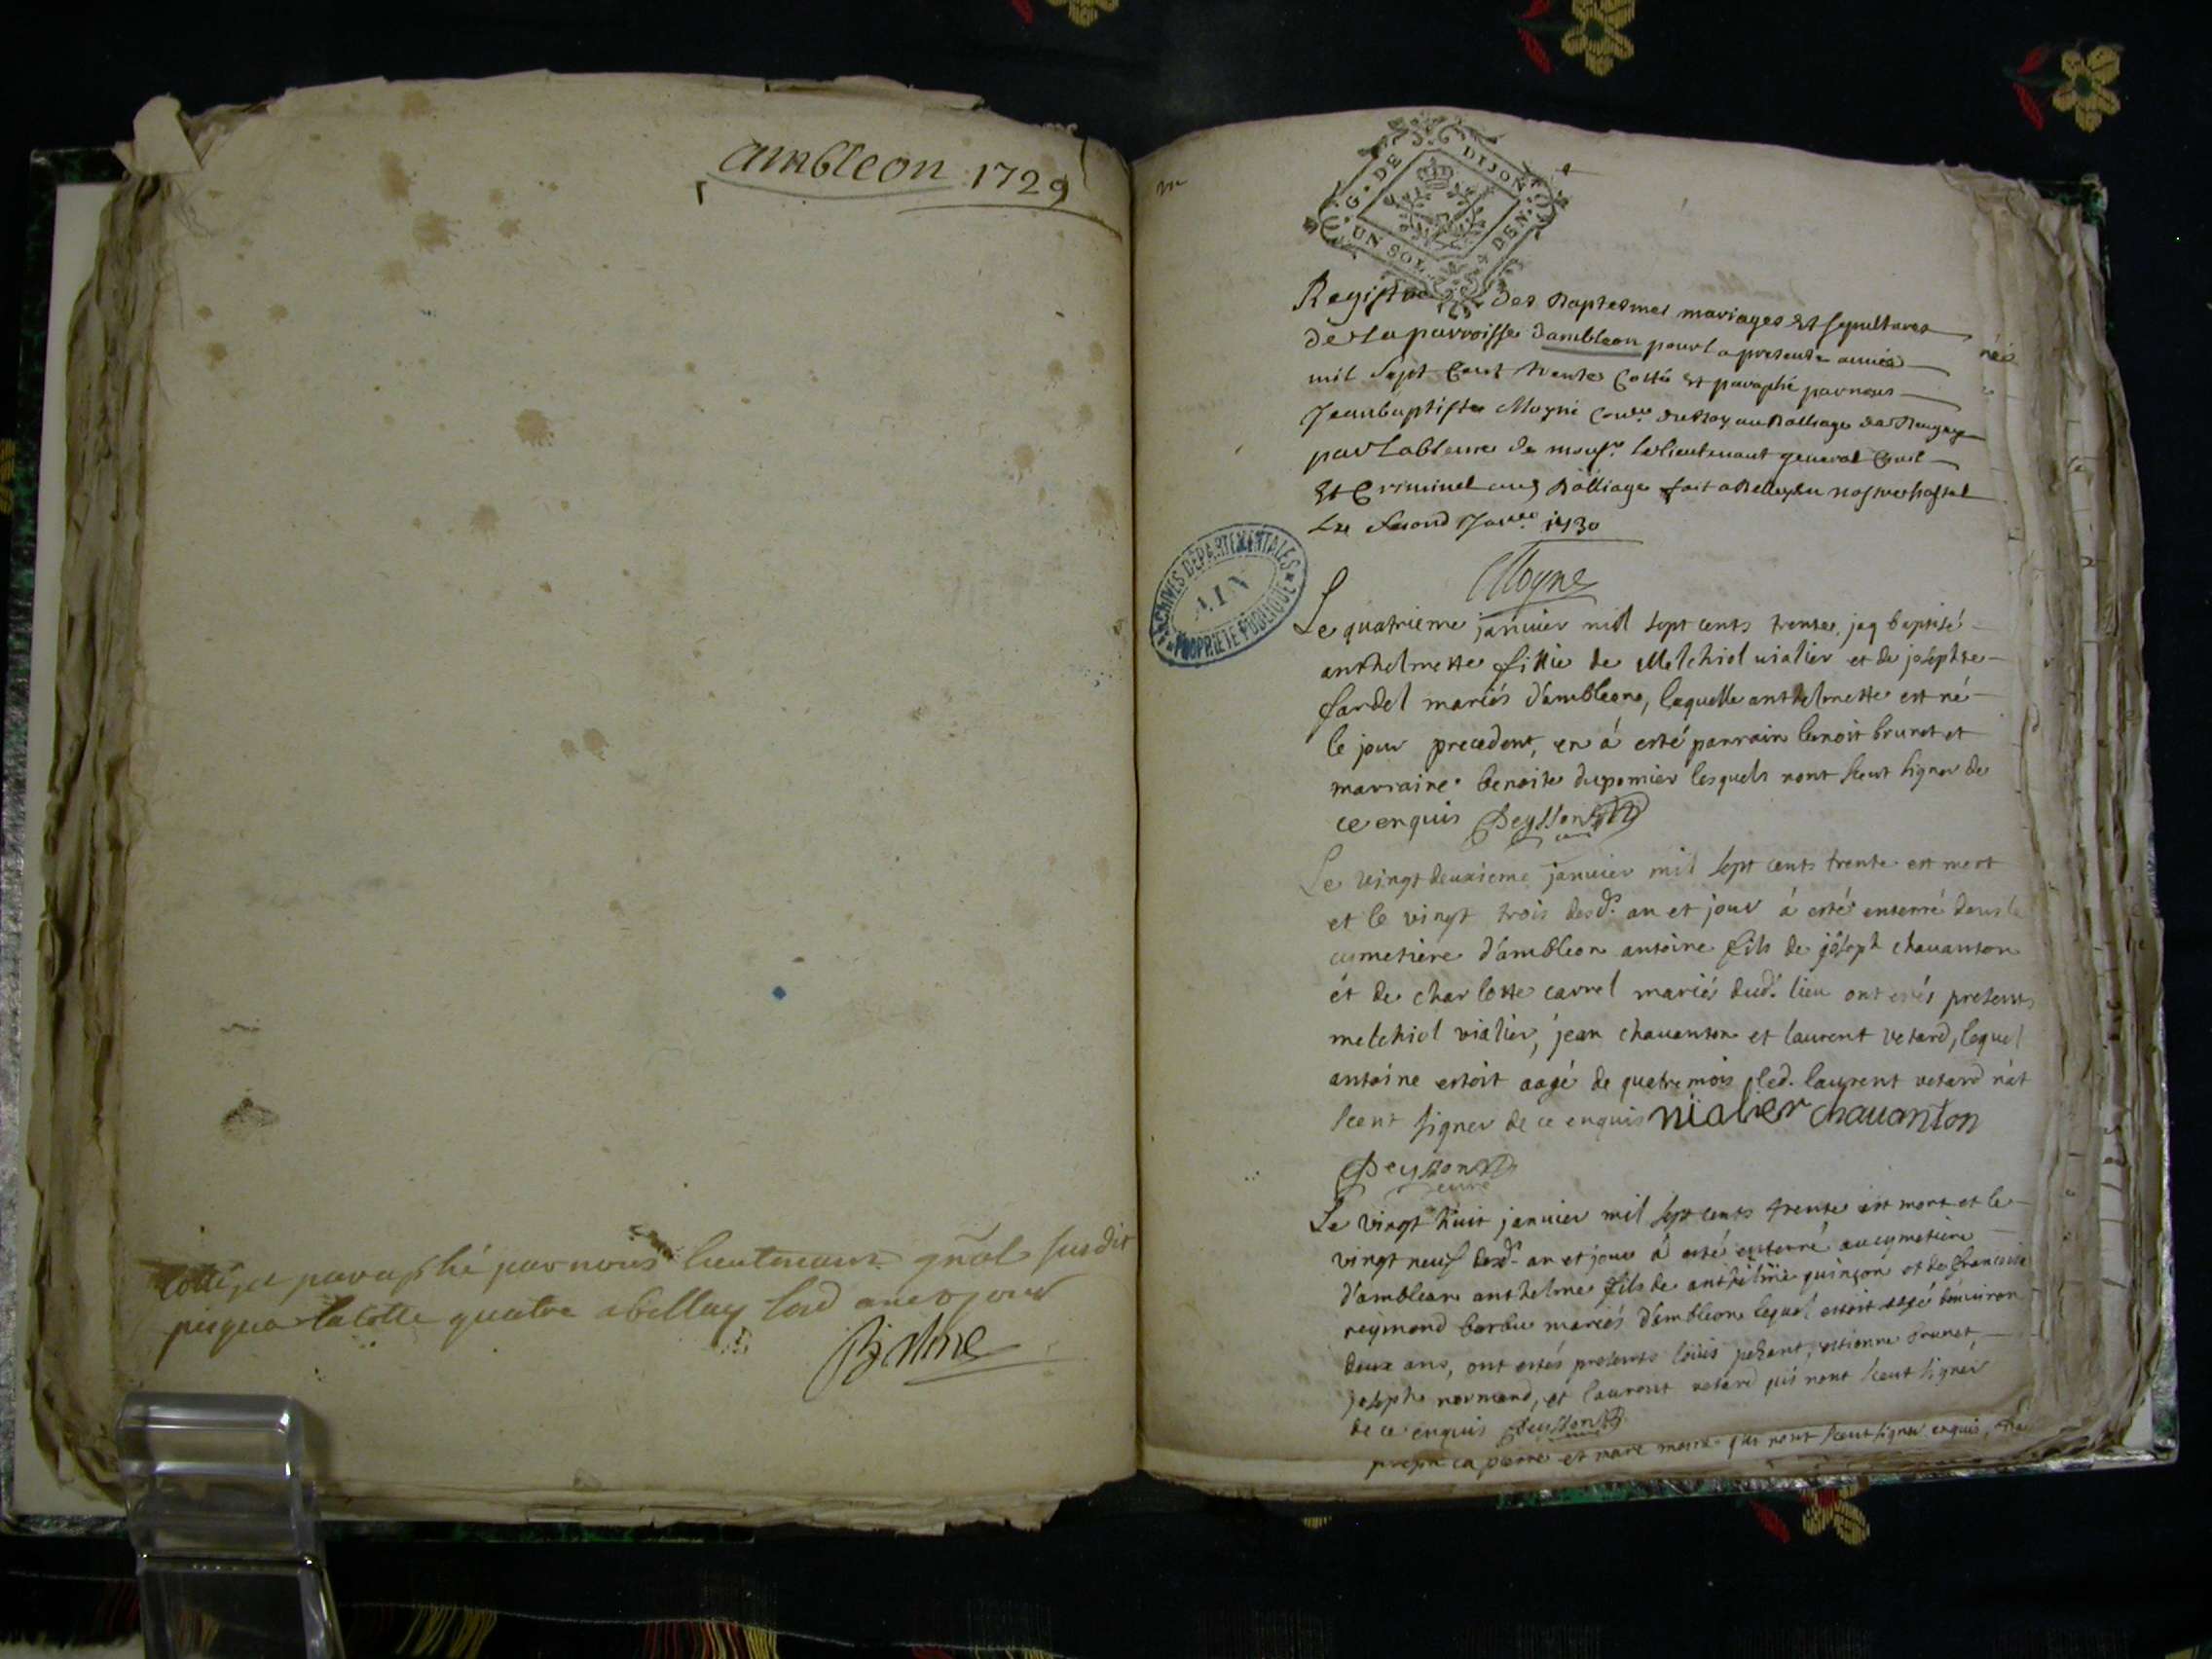 ambleon 1729
Cotté et paraphé par nous lieutenant gñal susdit
jusqua la cotte quatre a belley led an et jour
Balme
G. DE DIJON
UN SOL 4 DEN.
Registre des Baptesmes mariages Et sepultures
de La parroisse dambleon pour la presente année
mil Sept Cent trente Cotté Et paraphé par nous
Jean baptiste Moyne Cons.er du Roy au Balliage de Bugey
par Labsence de mons.r le lieutenant general Civil
Et Criminel aud Balliage fait a Belley En nostre hostel
Le second Janv.er 1730
Moyne
ARCHIVES DÉPARTEMENTALES
AIN
PROPRIÉTÉ PUBLIQUE
Le quatrieme janvier mil sept cents trente, jay baptisé
anthelmette fillie de Melchiol vialier et de josephte
fardel mariés d'ambleon, laquelle anthelmette est né
le jour precedent, en á esté parrain benoit brunet et
marraine benoite dupomier lesquels nont sceut signer de
ce enquis Peysson curé
Le vingt deuxieme janvier mil sept cents trente est mort
et le vingt trois desd.s an et jour á esté enterré dans le
cimetiere d'ambleon antoine fils de joseph chavanton
ét de charlotte carrel mariés dud. lieu ont estés presents
melchiol vialier, jean chavanton et laurent vetard, lequel
antoine estoit aagé de quatre mois led. laurent vetard n'at
sceut signer de ce enquis vialier chavanton
Peysson curé
Le vingt huit janvier mil sept cents trente est mort et le
vingt neuf desd.s an et jour á esté enterré au cymetiere
d'ambleon anthelme fils de anthelme quinçon et de francoise
reymond barbu mariés d'ambleon lequel estoit agé d'environ
deux ans, ont estés presents louis pesant, estienne brunet,
joseph normand, et laurent vetard qui nont sceut signer
de ce enquis Peysson curé
et qui nont sceut signer enquis